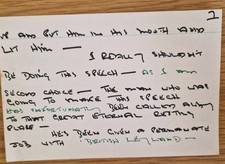 1
UP AND PUT HIM IN HIS MOUTH AND
LIT HIM —
I REALLY SHOULDN'T
BE DOING THIS SPEECH — AS I AM
SECOND CHOICE — THE MAN WHO WAS
GOING TO MAKE THIS SPEECH
HAS UNFORTUNATELY BEEN CALLED AWAY
TO THAT GREAT ETERNAL RESTING
PLACE — HE'S BEEN GIVEN A PERMANENT
JOB WITH BRITISH LEYLAND —